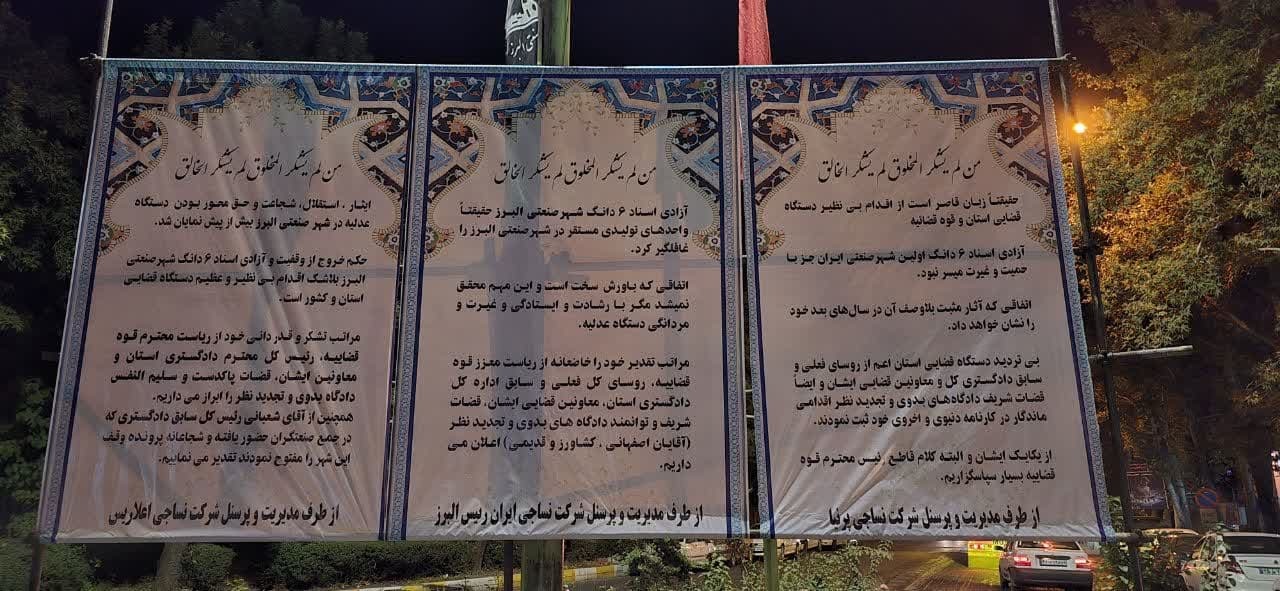 من لم یشکر المخلوق لم یشکر الخالق
حقیقتاً زبان قاصر است از اقدام بی نظیر دستگاه
قضایی استان و قوه قضائیه
آزادی اسناد ۶ دانگ اولین شهر صنعتی ایران جز با
حمیت و غیرت میسر نبود.
اتفاقی که آثار مثبت بلاوصف آن در سال‌های بعد خود
را نشان خواهد داد.
بی تردید دستگاه قضایی استان اعم از روسای فعلی و
سابق دادگستری کل و معاونین قضایی ایشان و ایضاً
قضات شریف دادگاه‌های بدوی و تجدید نظر اقدامی
ماندگار در کارنامه دنیوی و اخروی خود ثبت نمودند.
از یکایک ایشان و البته کلام قاطع رئیس محترم قوه
قضاییه بسیار سپاسگزاریم.
از طرف مدیریت و پرسنل شرکت نساجی پرنیا
من لم یشکر المخلوق لم یشکر الخالق
آزادی اسناد ۶ دانگ شهر صنعتی البرز حقیقتاً
واحدهای تولیدی مستقر در شهر صنعتی البرز را
غافلگیر کرد.
اتفاقی که باورش سخت است و این مهم محقق
نمیشد مگر با رشادت و ایستادگی و غیرت و
مردانگی دستگاه عدلیه.
مراتب تقدیر خود را خاضعانه از ریاست معزز قوه
قضاییه، روسای کل فعلی و سابق اداره کل
دادگستری استان، معاونین قضایی ایشان، قضات
شریف و توانمند دادگاه های بدوی و تجدید نظر
(آقایان اصفهانی ، کشاورز و قدیمی) اعلان می
داریم.
از طرف مدیریت و پرسنل شرکت نساجی ایران رئیس البرز
من لم یشکر المخلوق لم یشکر الخالق
ایثار ، استقلال، شجاعت و حق محور بودن دستگاه
عدلیه در شهر صنعتی البرز بیش از پیش نمایان شد.
حکم خروج از وقفیت و آزادی اسناد ۶ دانگ شهر صنعتی
البرز بلاشک اقدام بی نظیر و عظیم دستگاه قضایی
استان و کشور است.
مراتب تشکر و قدر دانی خود از ریاست محترم قوه
قضاییه، رئیس کل محترم دادگستری استان و
معاونین ایشان، قضات پاکدست و سلیم النفس
دادگاه بدوی و تجدید نظر را ابراز می داریم.
همچنین از آقای شعبانی رئیس کل سابق دادگستری که
در جمع صنعتگران حضور یافته و شجاعانه پرونده وقف
این شهر را مفتوح نمودند، تقدیر می نماییم.
از طرف مدیریت و پرسنل شرکت نساجی اعلاریس